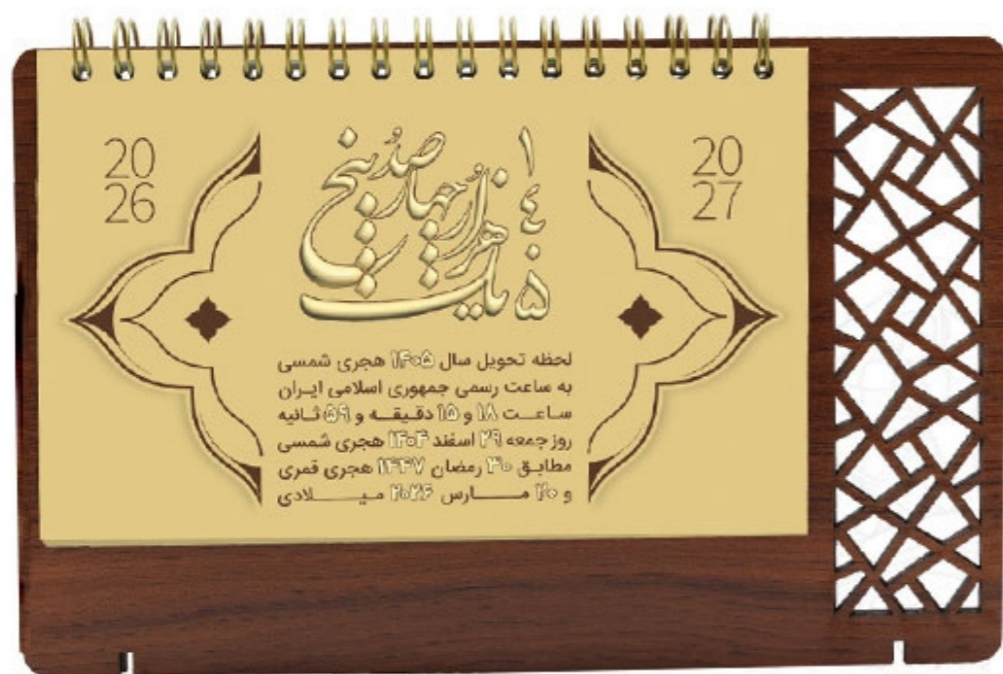 20
26
20
27
۱۴۰۵
یک هزار چهار صد پنج
لحظه تحویل سال ۱۴۰۵ هجری شمسی
به ساعت رسمی جمهوری اسلامی ایران
ساعت ۱۸ و ۱۵ دقیقه و ۵۹ ثانیه
روز جمعه ۲۹ اسفند ۱۴۰۴ هجری شمسی
مطابق ۳۰ رمضان ۱۴۴۷ هجری قمری
و ۲۰ مارس ۲۰۲۶ میلادی